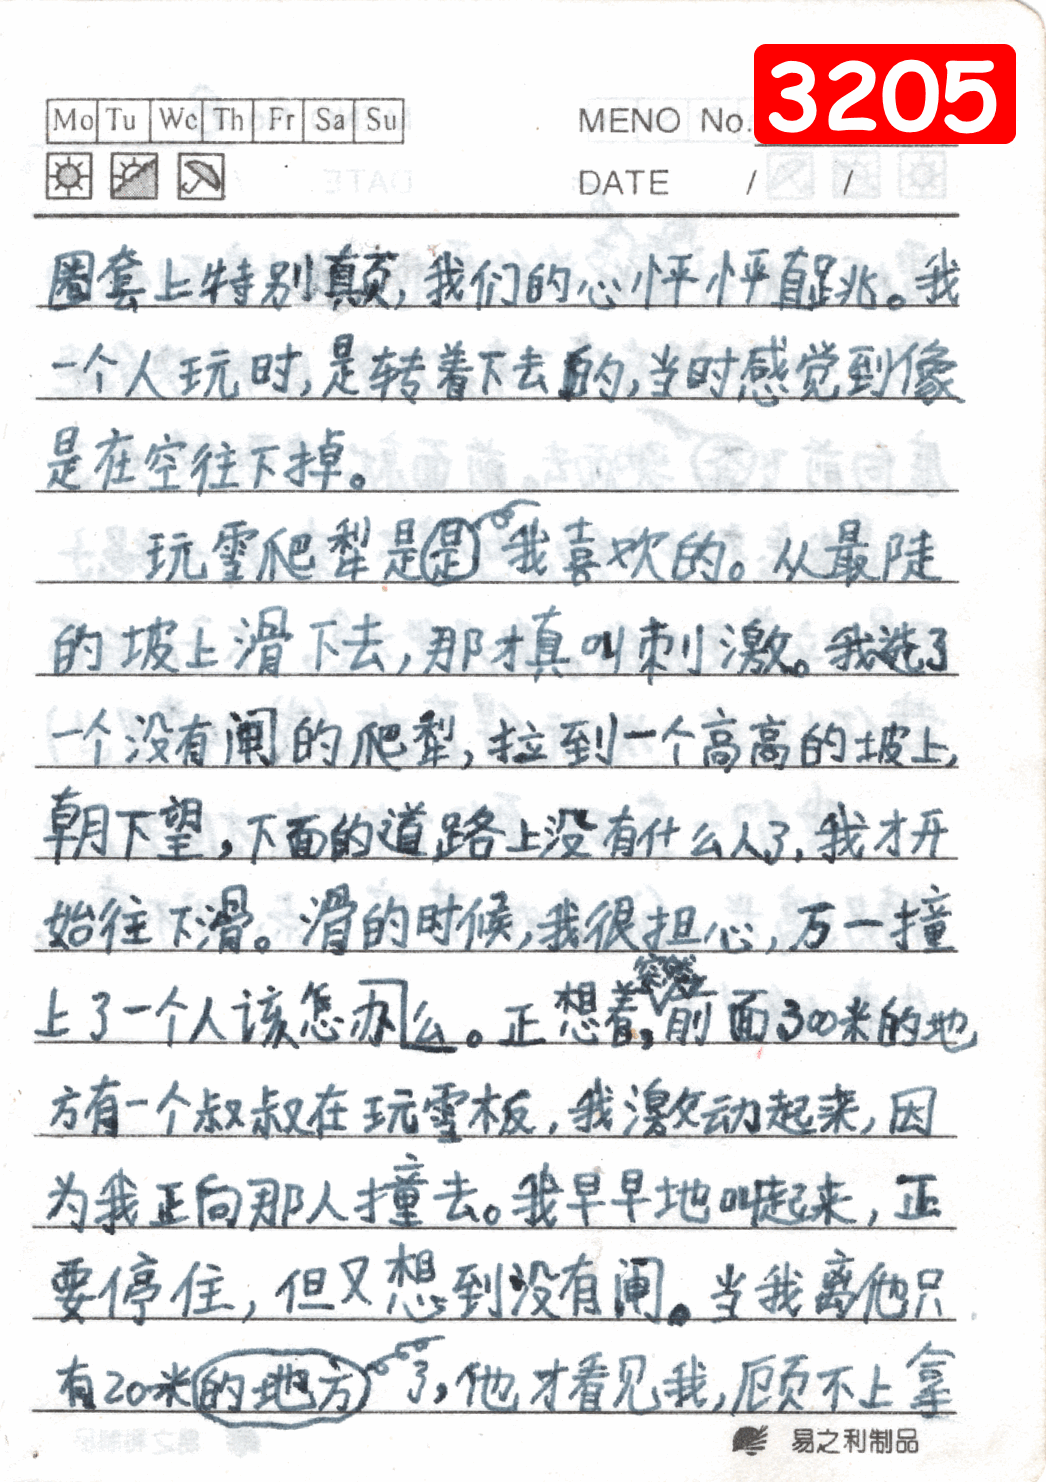 3205
Mo Tu We Th Fr Sa Su
MENO No.
DATE / /
圈套上特别颠，我们的心怦怦直跳。我
一个人玩时，是转着下去的，当时感觉到像
是在空往下掉。
玩雪爬犁是是我喜欢的。从最陡
的坡上滑下去，那才真叫刺激。我选了
一个没有闸的爬犁，拉到一个高高的坡上，
朝下望，下面的道路上没有什么人了，我才开
始往下滑。滑的时候，我很担心，万一撞
突然
上了一个人该怎办么。正想着，前面300米的地
方有一个叔叔在玩雪板，我激动起来，因
为我正向那人撞去。我早早地叫起来，正
要停住，但又想到没有闸。当我离他只
有20米的地方了，他才看见我，顾不上拿
易之利制品